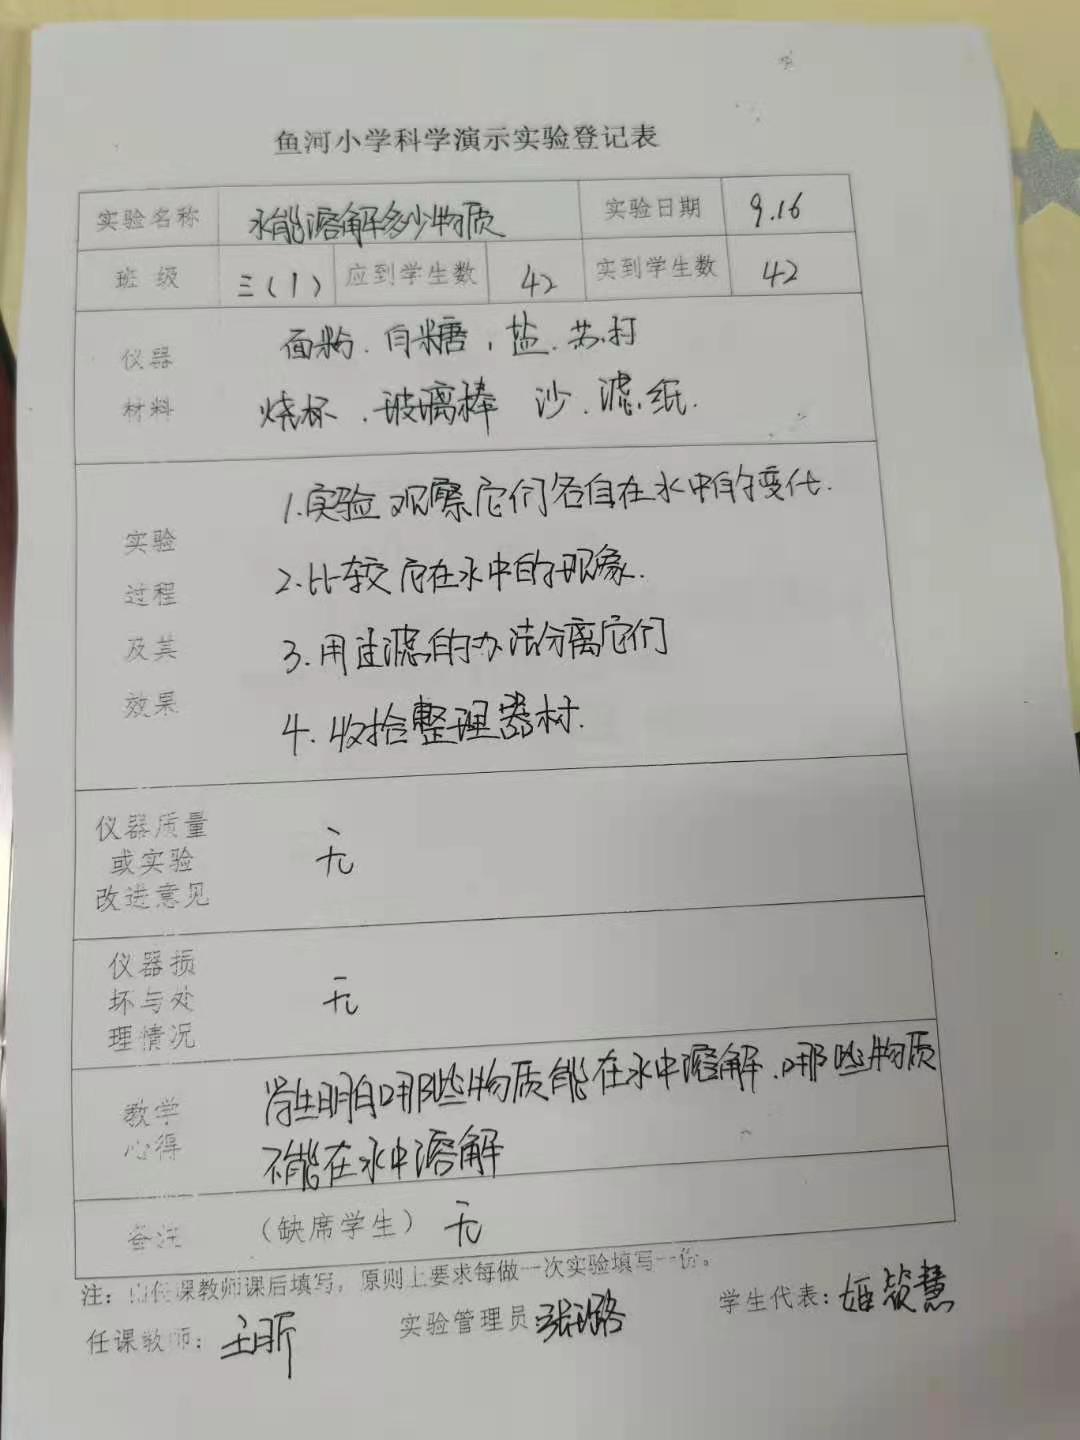 鱼河小学科学演示实验登记表
实验名称 水能溶解多少物质 实验日期 9.16
班 级 三(1) 应到学生数 42 实到学生数 42
仪器
材料
面粉.白糖,盐.苏打
烧杯.玻璃棒 沙.滤纸.
实验
过程
及其
效果
1.实验 观察它们各自在水中的变化.
2.比较它在水中的现象.
3.用过滤的办法分离它们
4.收拾整理器材.
仪器质量
或实验
改进意见
无
仪器损
坏与处
理情况
无
教学
心得
学生明白哪些物质能在水中溶解.哪些物质
不能在水中溶解
备注 (缺席学生) 无
注:由任课教师课后填写,原则上要求每做一次实验填写一份。
任课教师: 王昕 实验管理员: 张璐 学生代表: 姬慧